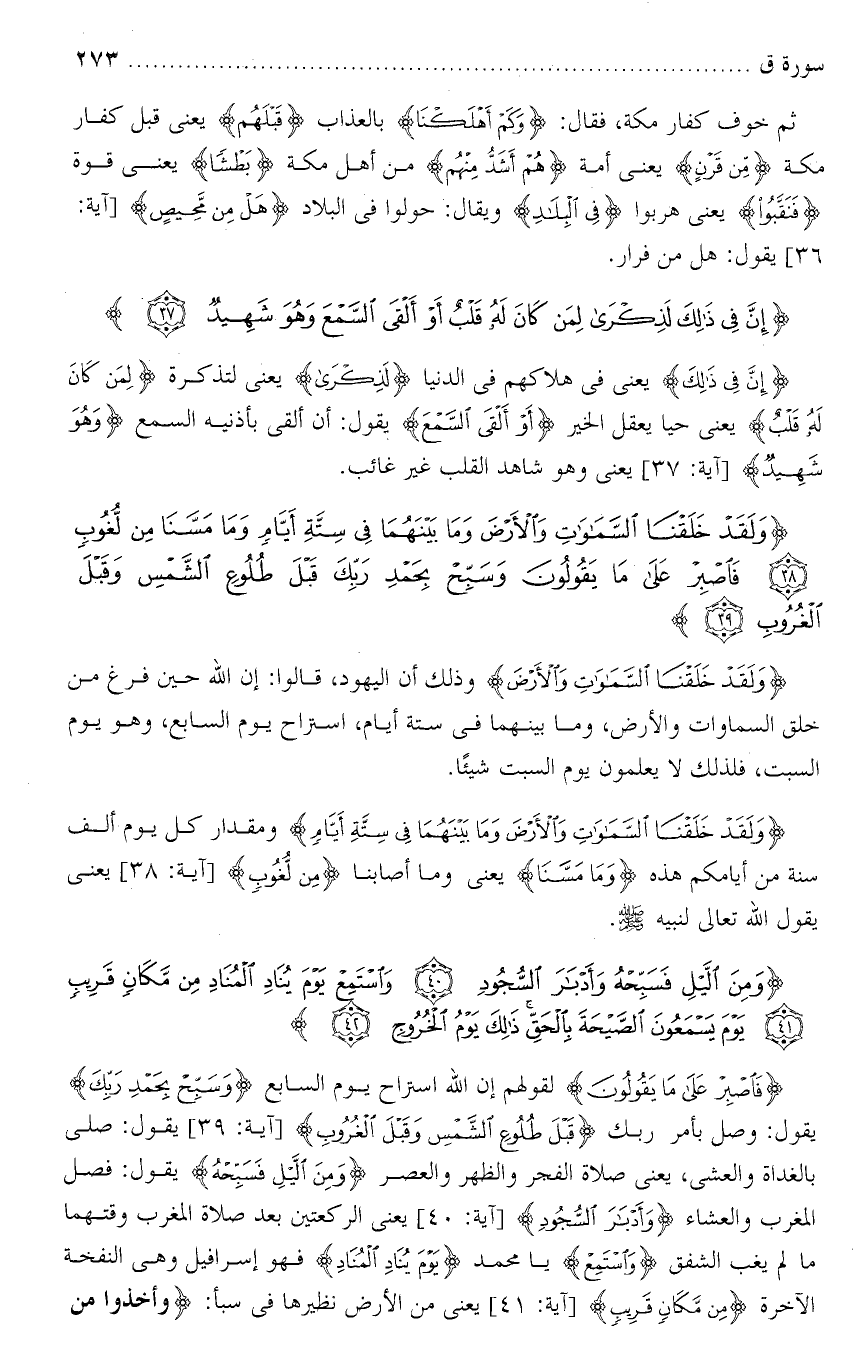 سورة ق ........................................................................... ٢٧٣
ثم خوف كفار مكة، فقال: ﴿وَكَمْ أَهْلَكْنَا﴾ بالعذاب ﴿قَبْلَهُم﴾ يعنى قبل كفـار
مكة ﴿مِّن قَرْنٍ﴾ يعنـى أمة ﴿هُمْ أَشَدُّ مِنْهُم﴾ مـن أهـل مكـة ﴿بَطْشًا﴾ يعنــى قـوة
﴿فَنَقَّبُوا۟﴾ يعنى هربوا ﴿فِى ٱلْبِلَـٰدِ﴾ ويقال: حولوا فى البلاد ﴿هَلْ مِن مَّحِيصٍ﴾ [آية:
٣٦] يقول: هل من فرار.
﴿إِنَّ فِى ذَٰلِكَ لَذِكْرَىٰ لِمَن كَانَ لَهُۥ قَلْبٌ أَوْ أَلْقَى ٱلسَّمْعَ وَهُوَ شَهِيدٌ ٣٧ ﴾
﴿إِنَّ فِى ذَٰلِكَ﴾ يعنى فى هلاكهم فى الدنيا ﴿لَذِكْرَىٰ﴾ يعنى لتذكـرة ﴿لِمَن كَانَ
لَهُۥ قَلْبٌ﴾ يعنى حيا يعقل الخير ﴿أَوْ أَلْقَى ٱلسَّمْعَ﴾ يقول: أن ألقى بأذنيـه السـمع ﴿وَهُوَ
شَهِيدٌ﴾ [آية: ٣٧] يعنى وهو شاهد القلب غير غائب.
﴿وَلَقَدْ خَلَقْنَا ٱلسَّمَـٰوَٰتِ وَٱلْأَرْضَ وَمَا بَيْنَهُمَا فِى سِتَّةِ أَيَّامٍ وَمَا مَسَّنَا مِن لُّغُوبٍ
٣٨ فَٱصْبِرْ عَلَىٰ مَا يَقُولُونَ وَسَبِّحْ بِحَمْدِ رَبِّكَ قَبْلَ طُلُوعِ ٱلشَّمْسِ وَقَبْلَ
ٱلْغُرُوبِ ٣٩ ﴾
﴿وَلَقَدْ خَلَقْنَا ٱلسَّمَـٰوَٰتِ وَٱلْأَرْضَ﴾ وذلك أن اليهود، قـالوا: إن الله حـين فـرغ مـن
خلق السماوات والأرض، ومـا بينهـما فـى ستة أيـام، اسـتراح يوم السـابع، وهـو يـوم
السبت، فلذلك لا يعلمون يوم السبت شيئًا.
﴿وَلَقَدْ خَلَقْنَا ٱلسَّمَـٰوَٰتِ وَٱلْأَرْضَ وَمَا بَيْنَهُمَا فِى سِتَّةِ أَيَّامٍ﴾ ومقـدار كـل يـوم ألـف
سنة من أيامكم هذه ﴿وَمَا مَسَّنَا﴾ يعنى ومـا أصابنـا ﴿مِن لُّغُوبٍ﴾ [آيـة: ٣٨] يعنـى
يقول الله تعالى لنبيه ﷺ.
﴿وَمِنَ ٱلَّيْلِ فَسَبِّحْهُ وَأَدْبَـٰرَ ٱلسُّجُودِ ٤٠ وَٱسْتَمِعْ يَوْمَ يُنَادِ ٱلْمُنَادِ مِن مَّكَانٍ قَرِيبٍ
٤١ يَوْمَ يَسْمَعُونَ ٱلصَّيْحَةَ بِٱلْحَقِّ ذَٰلِكَ يَوْمُ ٱلْخُرُوجِ ٤٢ ﴾
﴿فَٱصْبِرْ عَلَىٰ مَا يَقُولُونَ﴾ لقولهم إن الله استراح يـوم السـابع ﴿وَسَبِّحْ بِحَمْدِ رَبِّكَ﴾
يقول: وصل بأمر ربـك ﴿قَبْلَ طُلُوعِ ٱلشَّمْسِ وَقَبْلَ ٱلْغُرُوبِ﴾ [آيـة: ٣٩] يقـول: صلـى
بالغداة والعشى، يعنى صلاة الفجر والظهر والعصـر ﴿وَمِنَ ٱلَّيْلِ فَسَبِّحْهُ﴾ يقـول: فصـل
المغرب والعشاء ﴿وَأَدْبَـٰرَ ٱلسُّجُودِ﴾ [آية: ٤٠] يعنى الركعتين بعد صلاة المغرب وقتـهما
ما لم يغب الشفق ﴿وَٱسْتَمِعْ﴾ يـا محمـد ﴿يَوْمَ يُنَادِ ٱلْمُنَادِ﴾ فـهو إسـرافيل وهـى النفخـة
الآخرة ﴿مِن مَّكَانٍ قَرِيبٍ﴾ [آية: ٤١] يعنى من الأرض نظيرها فى سبأ: ﴿وأخذوا من